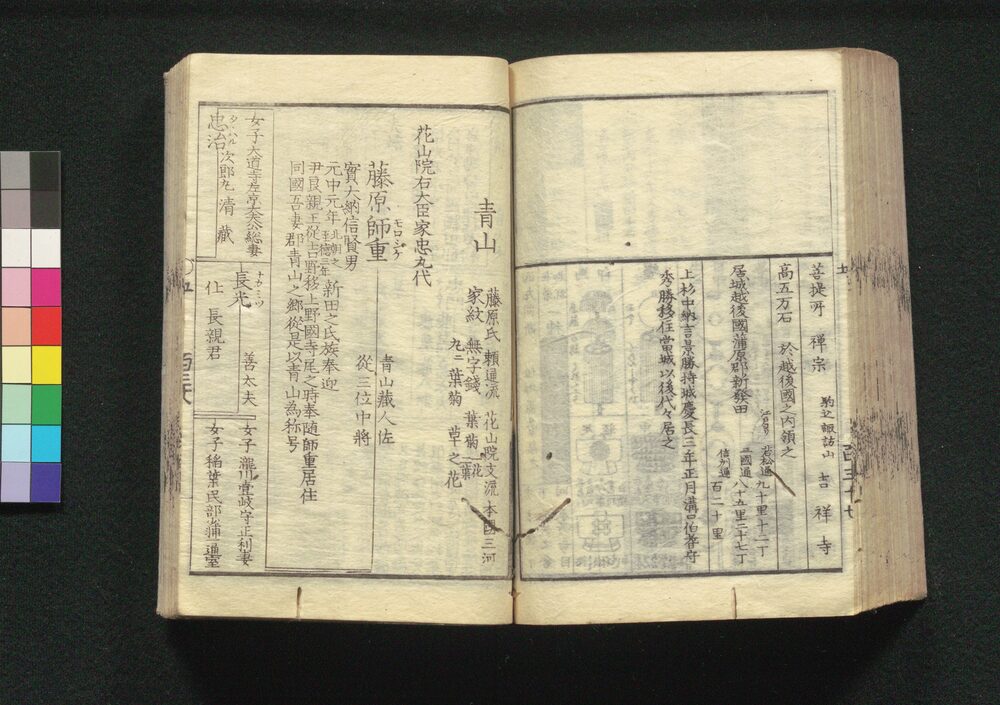 菩提所 禅宗 駒込諏訪山 吉祥寺
高五万石 於越後國之内領之
居城越後國蒲原郡新発田
江戸ヨリ 若松通九十里十二丁
三國通八十五里三十七丁
信州通百二十里
上杉中納言景勝持城慶長三年正月溝口伯耆守
秀勝移住當城以後代々居之
青山
藤原氏 頼通流 花山院支流 本国三河
家紋 無字銭 葉菊 一花一葉
九二葉菊 草之花
花山院右大臣家忠九代
藤原師重 モロシケ
青山蔵人佐
從三位中將
實大納信賢男
元中元年 北朝之至徳三年 新田之氏族奉迎
尹良親王從吉野移上野國寺尾之時奉随師重居住
同國吾妻郡青山之郷從是以青山為称号
女子 大道寺左京亮公総妻
忠治 タヽハル 次郎九 清蔵
長光 ナカミツ 善太夫
仕 長親君
女子 瀧川壹岐守正利妻
女子 稲葉民部少輔一通室